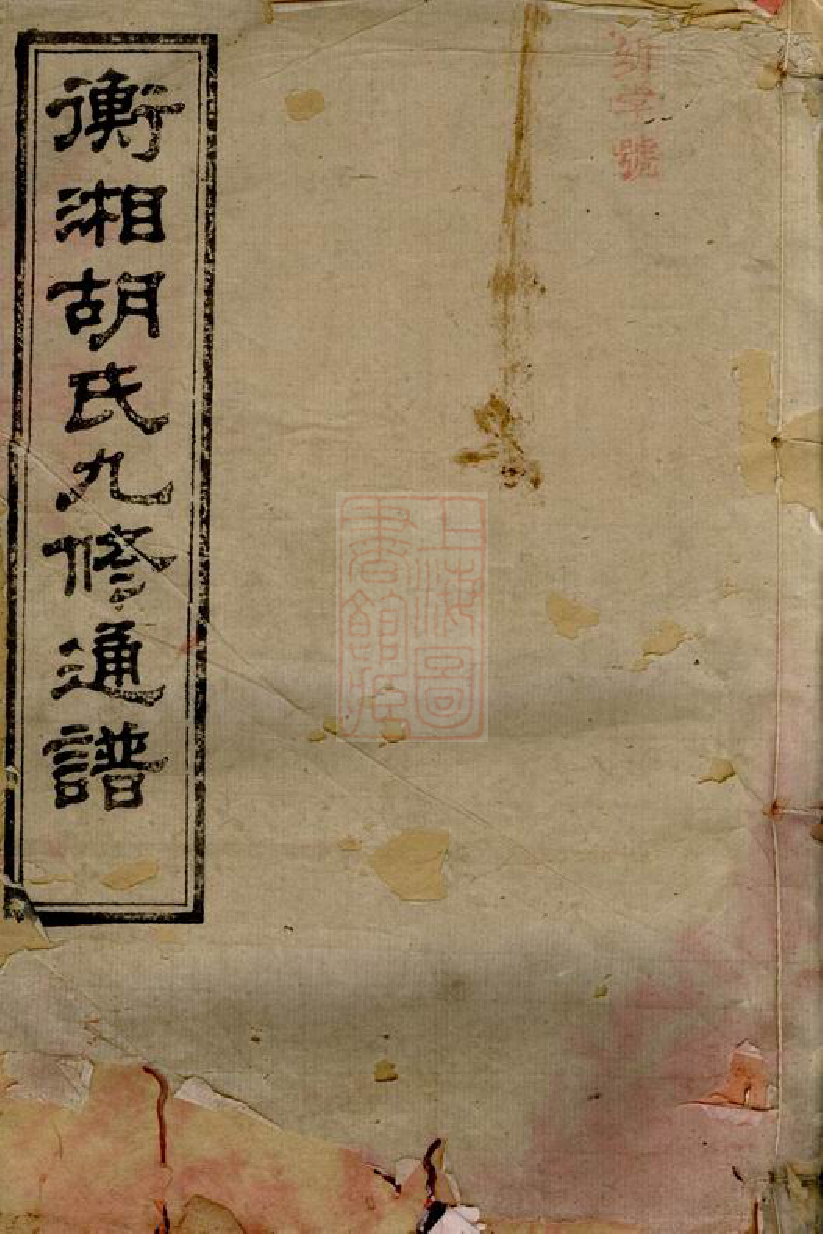 字號
衡湘胡氏九修通譜
上海圖
書館藏